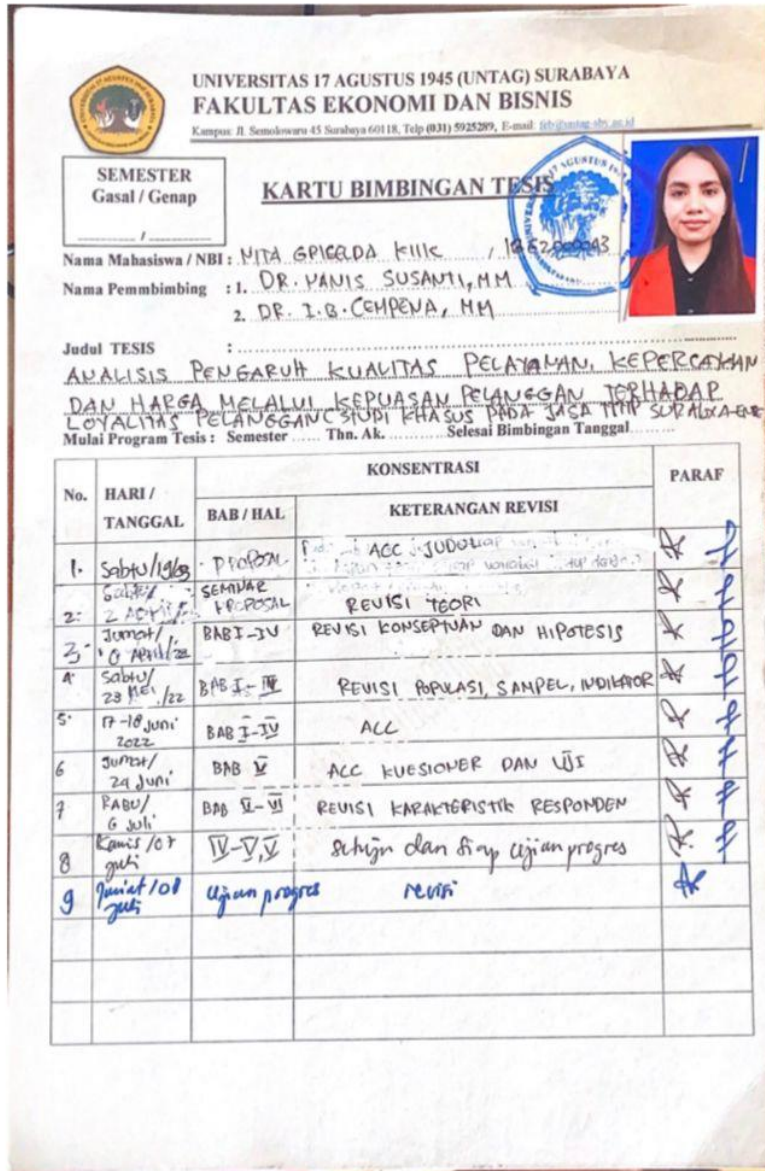 UNIVERSITAS 17 AGUSTUS 1945 (UNTAG) SURABAYA
FAKULTAS EKONOMI DAN BISNIS
Kampus: Jl. Semolowaru 45 Surabaya 60118, Telp (031) 5925289, E-mail: feb@untag-sby.ac.id
SEMESTER
Gasal / Genap
/
KARTU BIMBINGAN TESIS
Nama Mahasiswa / NBI : NITA GRISELDA KIIK /
Nama Pemmbimbing : 1. DR. HANIS SUSANTI, MM
2. DR. I.B. CEMPENA, MM
Judul TESIS :
ANALISIS PENGARUH KUALITAS PELAYANAN, KEPERCAYAAN
DAN HARGA MELALUI KEPUASAN PELANGGAN TERHADAP
LOYALITAS PELANGGAN (STUDI KHASUS PADA JASA TITIP
Mulai Program Tesis : Semester ...... Thn. Ak. .......... Selesai Bimbingan Tanggal ........
No. HARI / TANGGAL KONSENTRASI PARAF
BAB / HAL KETERANGAN REVISI
1. Sabtu/19/03 PROPOSAL ACC JUDUL
2. Sabtu/ 2 April SEMINAR PROPOSAL REVISI TEORI
3. Jumat/ April/22 BAB I-IV REVISI KONSEPTUAN DAN HIPOTESIS
4. Sabtu/ 23 Mei /22 BAB I- IV REVISI POPULASI, SAMPEL, INDIKATOR
5. 17-18 Juni 2022 BAB I-IV ACC
6 Jumat/ 24 Juni BAB V ACC KUESIONER DAN UJI
7 RABU/ 6 Juli BAB V-VI REVISI KARAKTERISTIK RESPONDEN
8 Kamis /07 Juli IV-V,V Setuju dan Siap ujian progres
9 Jumat /08 Juli Ujian progres revisi